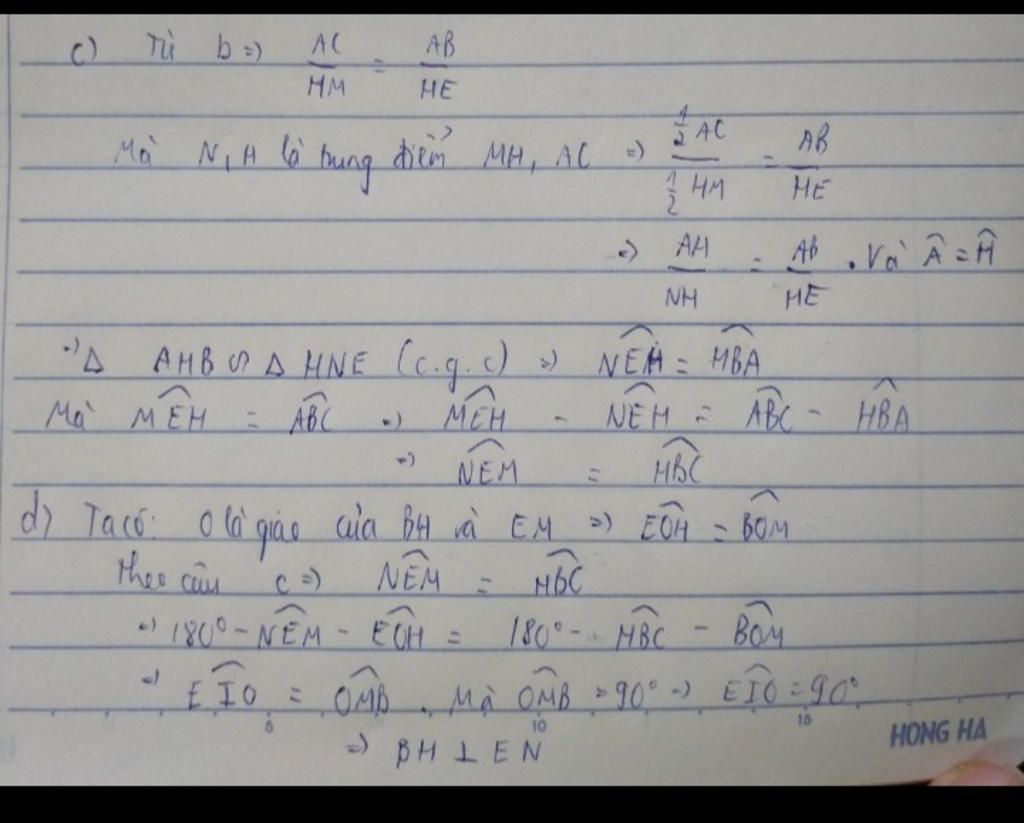 c) Từ b => AC/HM = AB/HE
Mà N, H là trung điểm MH, AC => 1/2 AC / 1/2 HM = AB/HE
=> AH/NH = AB/HE . Và Â = Ĥ
=> Δ AHB ∽ Δ HNE (c.g.c) => NÊH = HB̂A
Mà MÊH = AB̂C => MÊH - NÊH = AB̂C - HB̂A
=> NÊM = HB̂C
d) Ta có: O là giao của BH và EM => EÔH = BÔM
Theo câu c => NÊM = HB̂C
=> 180° - NÊM - EÔH = 180° - HB̂C - BÔM
=> EÎO = OM̂B . Mà OM̂B = 90° => EÎO = 90°
5 10 15
HONG HA
=> BH ⊥ EN